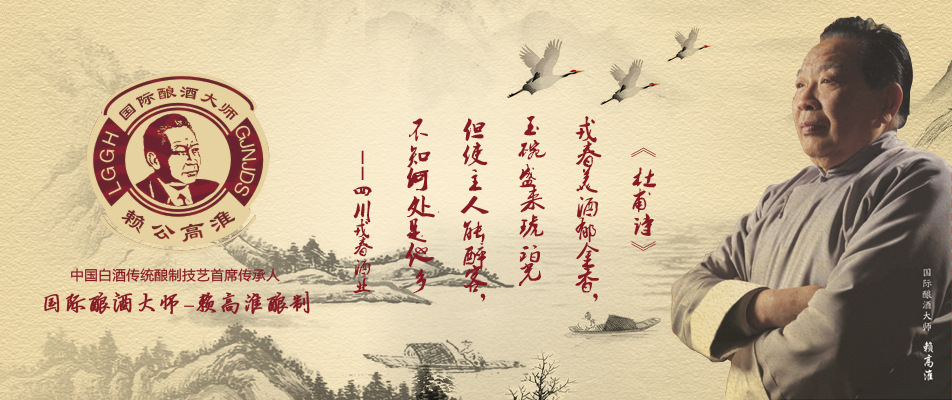 国际酿酒大师
LGGH
GJNJDS
赖公高淮
中国白酒传统酿制技艺首席传承人
国际酿酒大师–赖高淮酿制
《杜甫诗》
戎春美酒郁金香，
玉碗盛来琥珀光
但使主人能醉客，
不知何处是他乡
——四川戎春酒业
国际酿酒大师 赖高淮